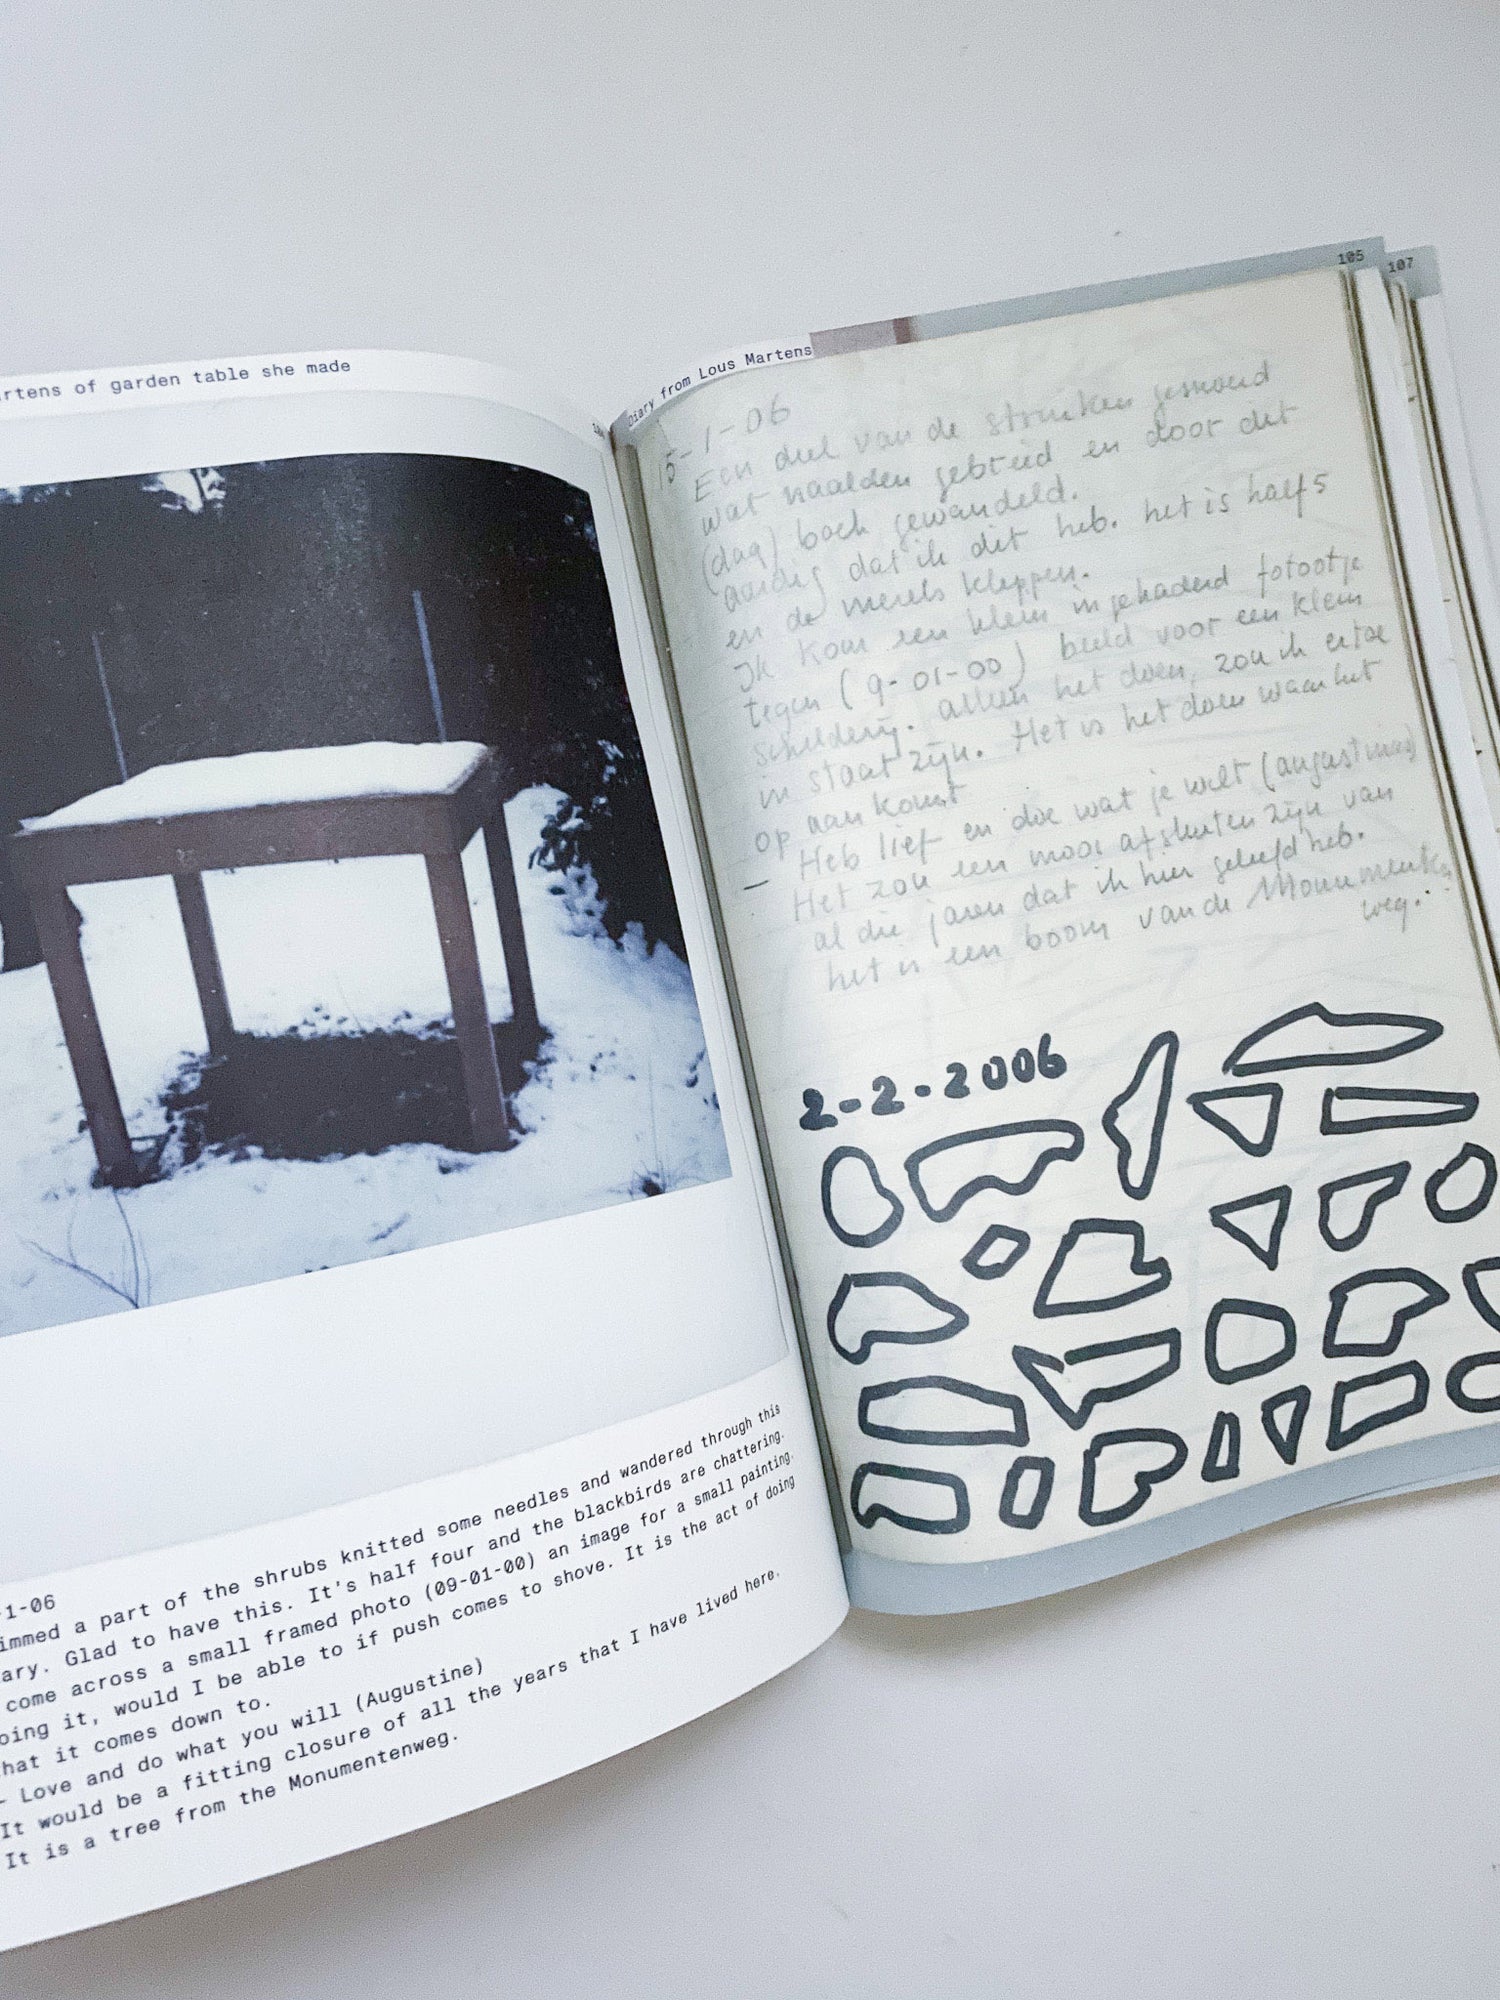 rtens of garden table she made
-1-06
immed a part of the shrubs knitted some needles and wandered through this
ary. Glad to have this. It's half four and the blackbirds are chattering.
come across a small framed photo (09-01-00) an image for a small painting.
oing it, would I be able to if push comes to shove. It is the act of doing
hat it comes down to.
- Love and do what you will (Augustine)
It would be a fitting closure of all the years that I have lived here.
It is a tree from the Monumentenweg.
Diary from Lous Martens
105
107
5-1-06
Een deel van de struiken gesnoeid
wat naalden gebreid en door dit
(dag) boek gewandeld.
aardig dat ik dit heb. het is half 5
en de merels kleppen.
Ik kom een klein ingekaderd fotootje
tegen (9-01-00) beeld voor een klein
schilderij. alleen het doen, zou ik ertoe
in staat zijn. Het is het doen waar het
op aan komt
— Heb lief en doe wat je wilt (augustinus)
Het zou een mooi afsluiten zijn van
al die jaren dat ik hier geleefd heb.
het is een boom van de Monumenten
weg.
2-2-2006